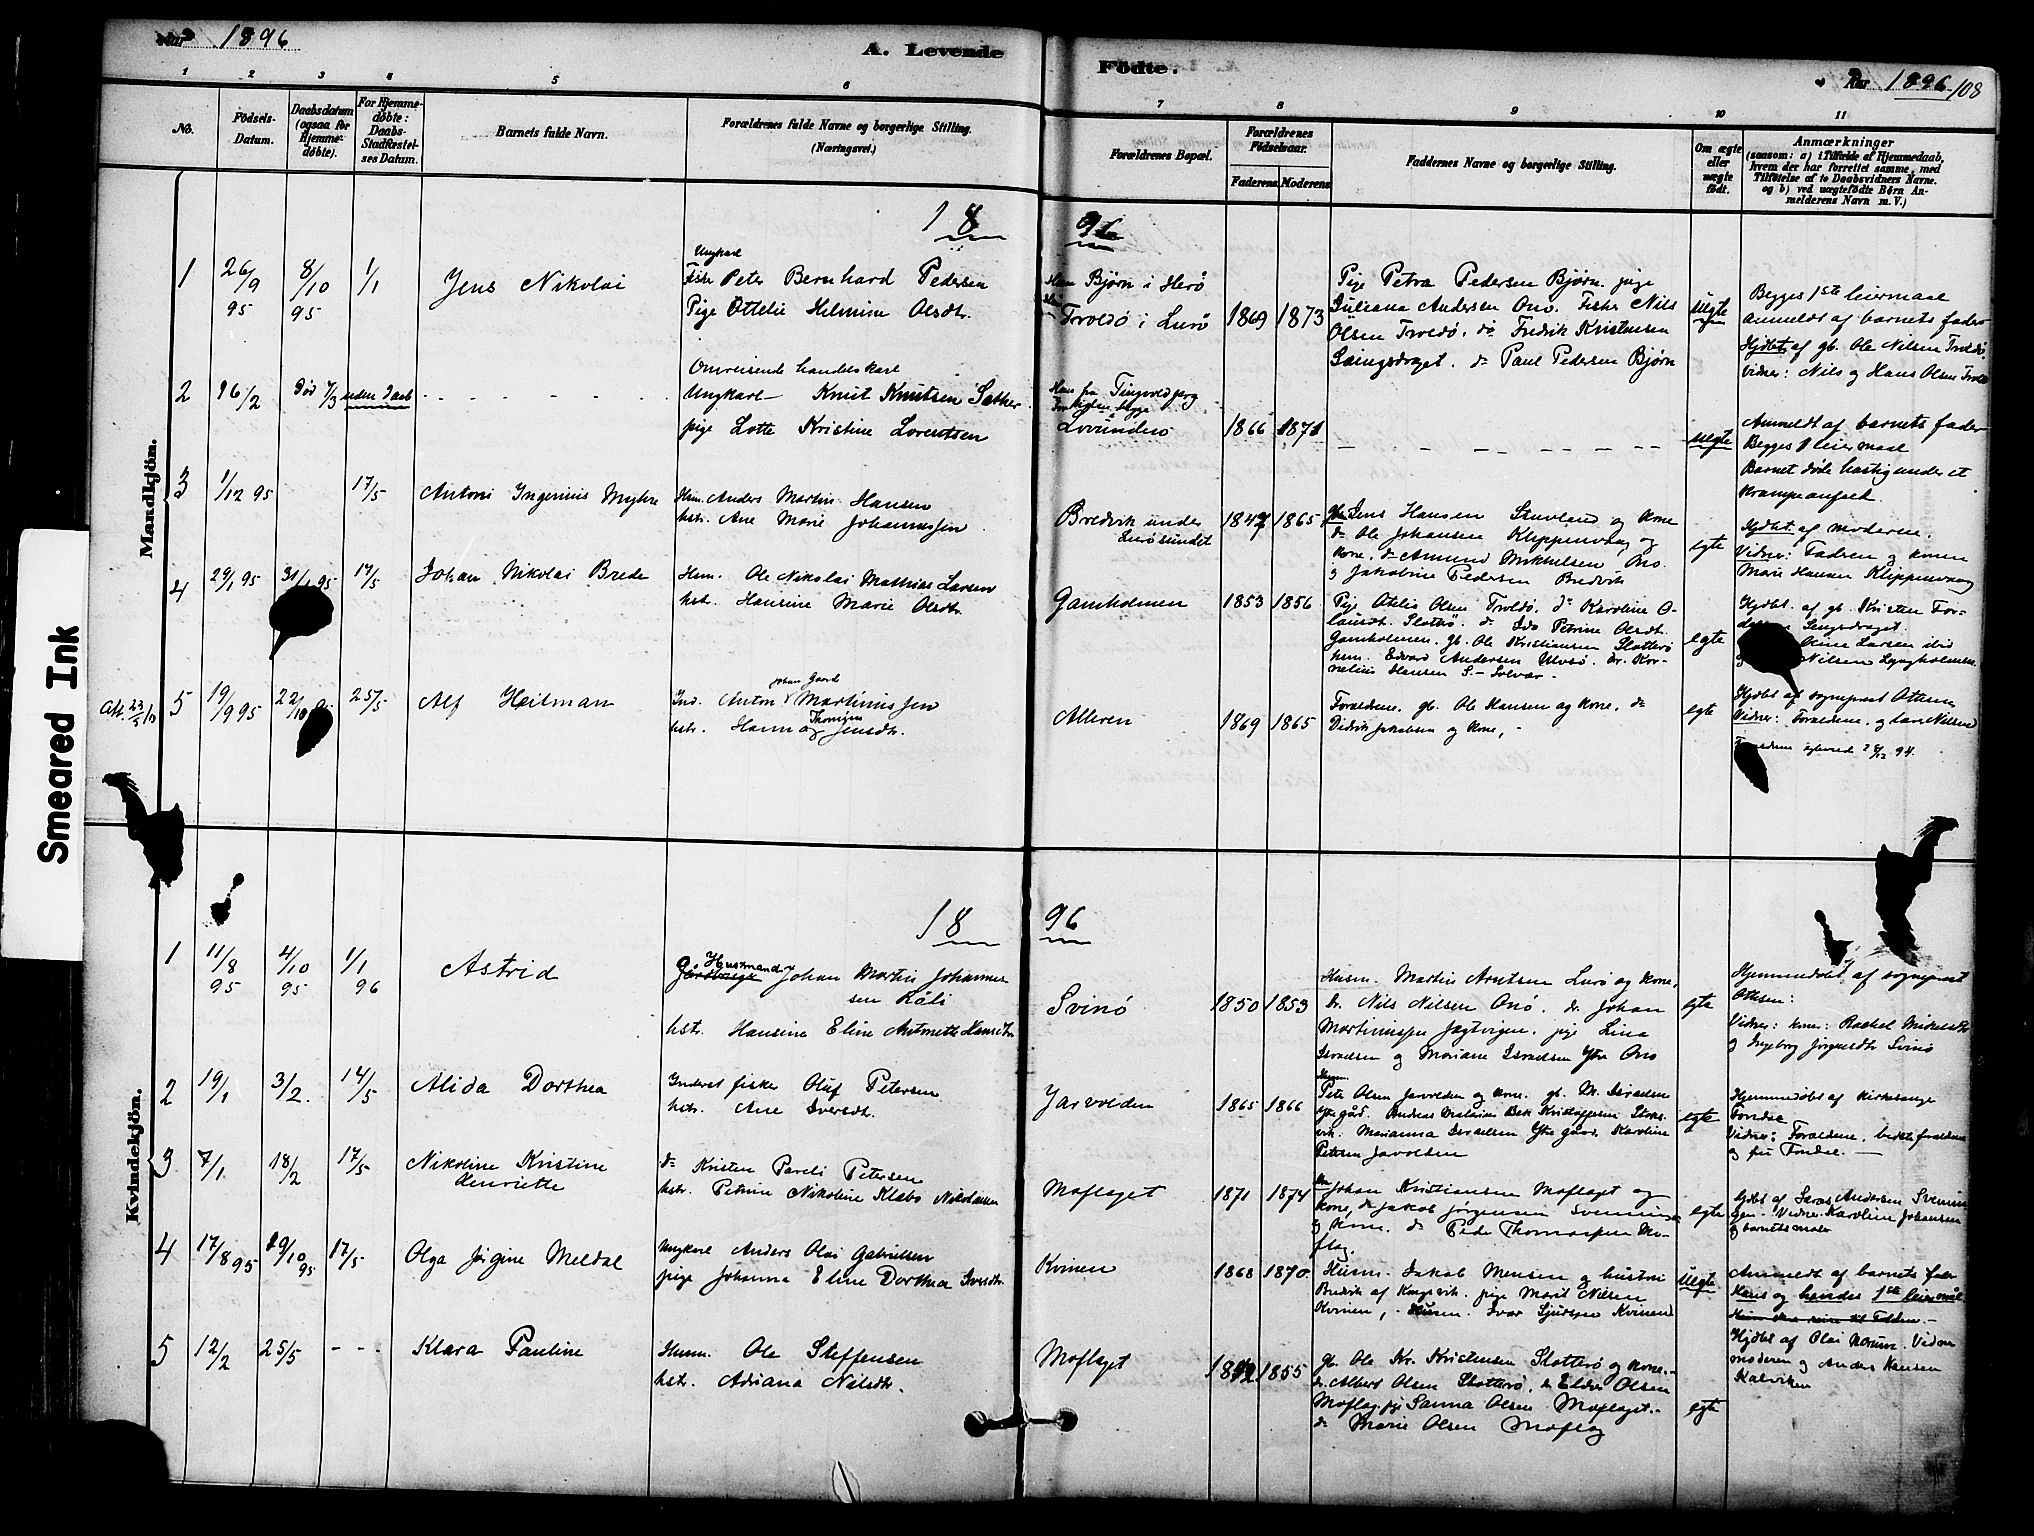 Aar 1896
A. Levende
Fødte.
Aar 1896 108
1 2 3 4 5 6 7 8 9 10 11
No.
Fødsels-Datum.
Daabsdatum (ogsaa for Hjemmedøbte).
For Hjemmedøbte: Daabs-Stadfæstelses Datum.
Barnets fulde Navn.
Forældrenes fulde Navne og borgerlige Stilling.
(Næringsvei.)
Forældrenes Bopæl.
Forældrenes Fødselsaar.
Faderens. Moderens.
Faddernes Navne og borgerlige Stilling.
Om ægte eller uægte født.
Anmærkninger
(saasom: a) i Tilfælde af Hjemmedaab,
hvem der har forrettet samme, med
Tilføielse af to Daabsvidners Navne.
og b) ved uægtefødte Børn An-
melderens Navn m. V.)
Mandkjön.
18 96
1 26/9 95 8/10 95 1/1 Jens Nikolai
Ungkarl
Fisker Peter Bernhard Pedersen
Pige Ottelie Helmine Olsdt.
Bjørn i Herø
Troldø i Lurø 1869 1873
Pige Petra Pedersen Bjørn. pige
Juliana Andersen Onø. Fisker Nils
Olsen Troldø. do Fredrik Kristensen
do Paul Pedersen Bjørn
uegte
Begges 1ste leiermaal
Anmeldt af barnets fader
Hjdbt. af gb. Ole Nilsen Troldø
Vidner: Nils og Hans Olsen Trold
2 16/2 Død 7/3 uden daab
Omreisende handelskarl
Ungkarl Knut Knutsen Sæther
pige Lotte Kristine Lorentsen
Lovunden 1866 1871
uegte
Anmeldt af barnets fader
Begges 1 leiermaal
Barnet døde hastig under et
krampeanfald.
3 1/12 95 17/5 Antoni Ingenius Myhre
Hsm. Anders Martin Hansen
hst. Ane Marie Johannessen
Bredvik under
Lurøsundet 1847 1865
Jens Hansen Stuvland og kone
do Ole Johansen Kleppenvaag og
kone, do Amund Mikkelsen Ono
og Jakobine Pedersen Bredvik
egte
Hjdbt. af moderen.
Vidner: Fadren og konen
Marie Hansen Kleppenvaag
4 29/1 95 31/1 95 17/5 Johan Nikolai Brede
Hsm. Ole Nikolai Mathias Larsen
hst. Hansine Marie Olsdt.
Gamholmen 1853 1856
Pige Otelie Olsen Troldø. do Karoline O-
laisdt. Slotterø. do Ida Petrine Olsdt.
Gamholmen. gb. Ole Kristiansen Slotterø
hsm. Edvard Andersen
Hansen S. Solvær.
egte
Hjdbt. af gb. Kristen
Larsen ibid
Nilsen Lyngholmen
5 19/9 95 22/10 25/5 Alf Heitman
Johan Gaard
Ind. Anton Martinussen
Thomine
hst. Hanna Jensdt.
Alleren 1869 1865
Forældrene. gb. Ole Hansen og kone, do
Didrik Jakobsen og kone, -
egte
Hjdbt af sogneprest Ottesen
Vidner: Forældrene, og Lars Nilsen
egteviede 28/12 94.
Kvindekjön.
18 96
1 11/8 95 4/10 95 1/1 96 Astrid
Husmand
Johan Martin Johannes
sen Råli
hst. Hansine Eline Antonette Hansdt.
Svinø 1850 1853
Husm. Martin Arntsen Lurø og kone,
do. Nils Nilsen Onø. do. Johan
Martinussen Jægtvigen. pige Lina
Israelsen og Mariane Israelsen Ytre Onø
egte
Hjemmedøbt af sogneprest
Ottesen:
Vidner: koner: Rachel Mikkelsdt.
og Ingeborg Svinø
2 19/1 3/2. 14/5 Alida Dorthea
Inderst fisker Oluf Petersen
hst. Ane Iversdt.
Jarvolden 1865 1866
Husm.
Peter Olsen Jarvolden og kone. gb. M. Israelsen
Ytre gård.
Marianna Israelsen Ytre Gaard. Karoline
Petersen Javolden
egte
Hjemmedøbt af kirkesanger
Fordal
Vidner: Forældrene, bedsteforældrene
og fru Fordal. -
3 7/1 18/2 17/5 Nikoline Kristine
Henriette
do Kristen Pareli Petersen
hst. Petrine Nikoline Klabo Nikolaisen
Moflaget 1871 1874
Johan Kristiansen Moflaget og
kone, do Jakob Jørgensen
og kone. do Peder Thomassen Mo-
flag.
egte
Hjdbt af Andersen
Vidner: Karoline Johansen
og barnets moder
4 17/8 95 19/10 95 17/5 Olga Jørgine Meldal
Ungkarl Anders Olai Gabrielsen
pige Johanna Eline Dorthea Iversdt.
Kvinen 1868 1870.
Husm. Jakob Monsen og hustru
Bredvik af Kongsvik. pige Marit Nilsen
Kvinen, - Husm. Ivar Kvinen
uegte
Anmeldt af barnets fader
Hans og hendes 1ste leiermål
5 12/2 25/5 - - - Klara Pauline
Husm. Ole Steffensen
hst. Adriana Nilsdt.
Moflaget 1855
gb. Ole Kr. Kristensen Slotterø og kone. -
do. Albert Olsen Slotterø, do Elder Olsen
Moflag. pige Sanna Olsen Moflaget. -
do Marie Olsen Moflag
egte
Hjdbt af Olai Norum. Vidner
moderen og Anders Hansen
Kalviken
Smeared Ink